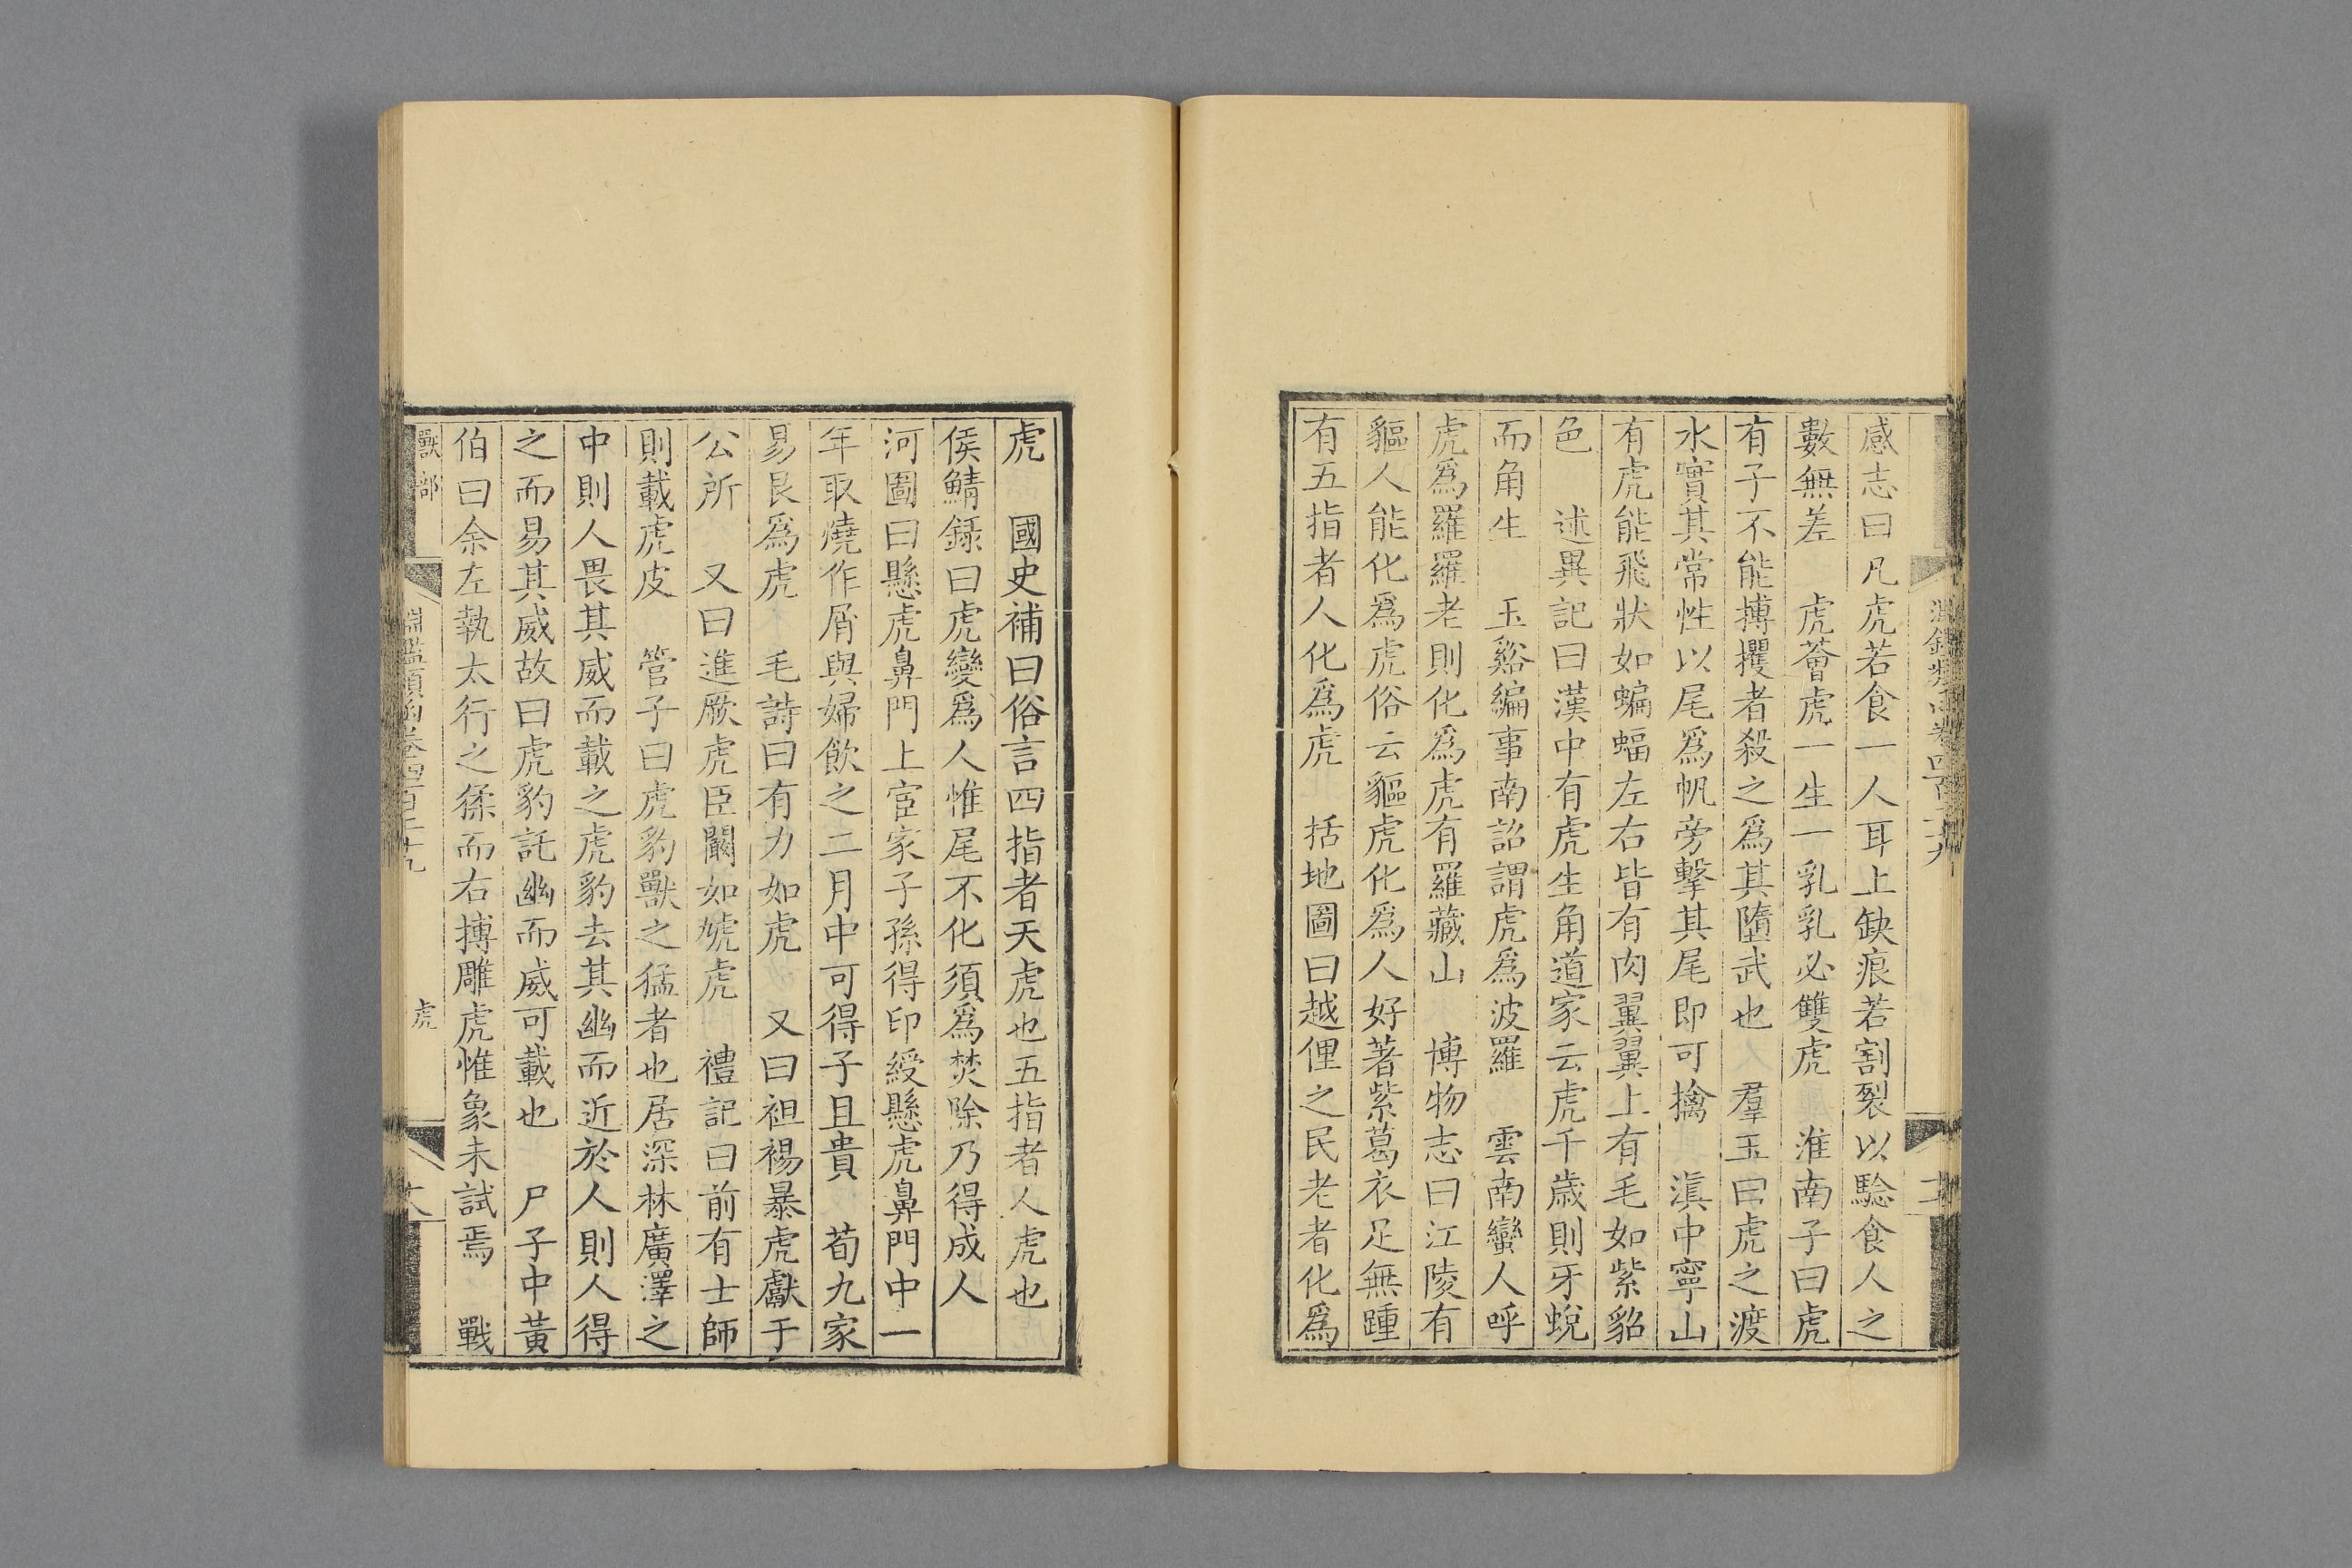 感志曰凡虎若食一人耳上缺痕若割裂以驗食人之
數無差　虎薈虎一生一乳乳必雙虎　淮南子曰虎
有子不能搏攫者殺之爲其墮武也　羣玉曰虎之渡
水實其常性以尾爲帆旁擊其尾即可擒　滇中寧山
有虎能飛狀如蝙蝠左右皆有肉翼翼上有毛如紫貂
色　述異記曰漢中有虎生角道家云虎千歲則牙蛻
而角生　玉谿編事南詔謂虎爲波羅　雲南蠻人呼
虎爲羅羅老則化爲虎有羅藏山　博物志曰江陵有
貙人能化爲虎俗云貙虎化爲人好著紫葛衣足無踵
有五指者人化爲虎　括地圖曰越俚之民老者化爲
虎　國史補曰俗言四指者天虎也五指者人虎也
侯鯖録曰虎變爲人惟尾不化須爲焚除乃得成人
河圖曰懸虎鼻門上宦家子孫得印綬懸虎鼻門中一
年取燒作屑與婦飲之二月中可得子且貴　荀九家
易艮爲虎　毛詩曰有力如虎　又曰袒裼暴虎獻于
公所　又曰進厥虎臣闞如虓虎　禮記曰前有士師
則載虎皮　管子曰虎豹獸之猛者也居深林廣澤之
中則人畏其威而載之虎豹去其幽而近於人則人得
之而易其威故曰虎豹託幽而威可載也　尸子中黃
伯曰余左執太行之猱而右搏雕虎惟象未試焉　戰
獸部
淵鑑類函卷四百二十九
虎